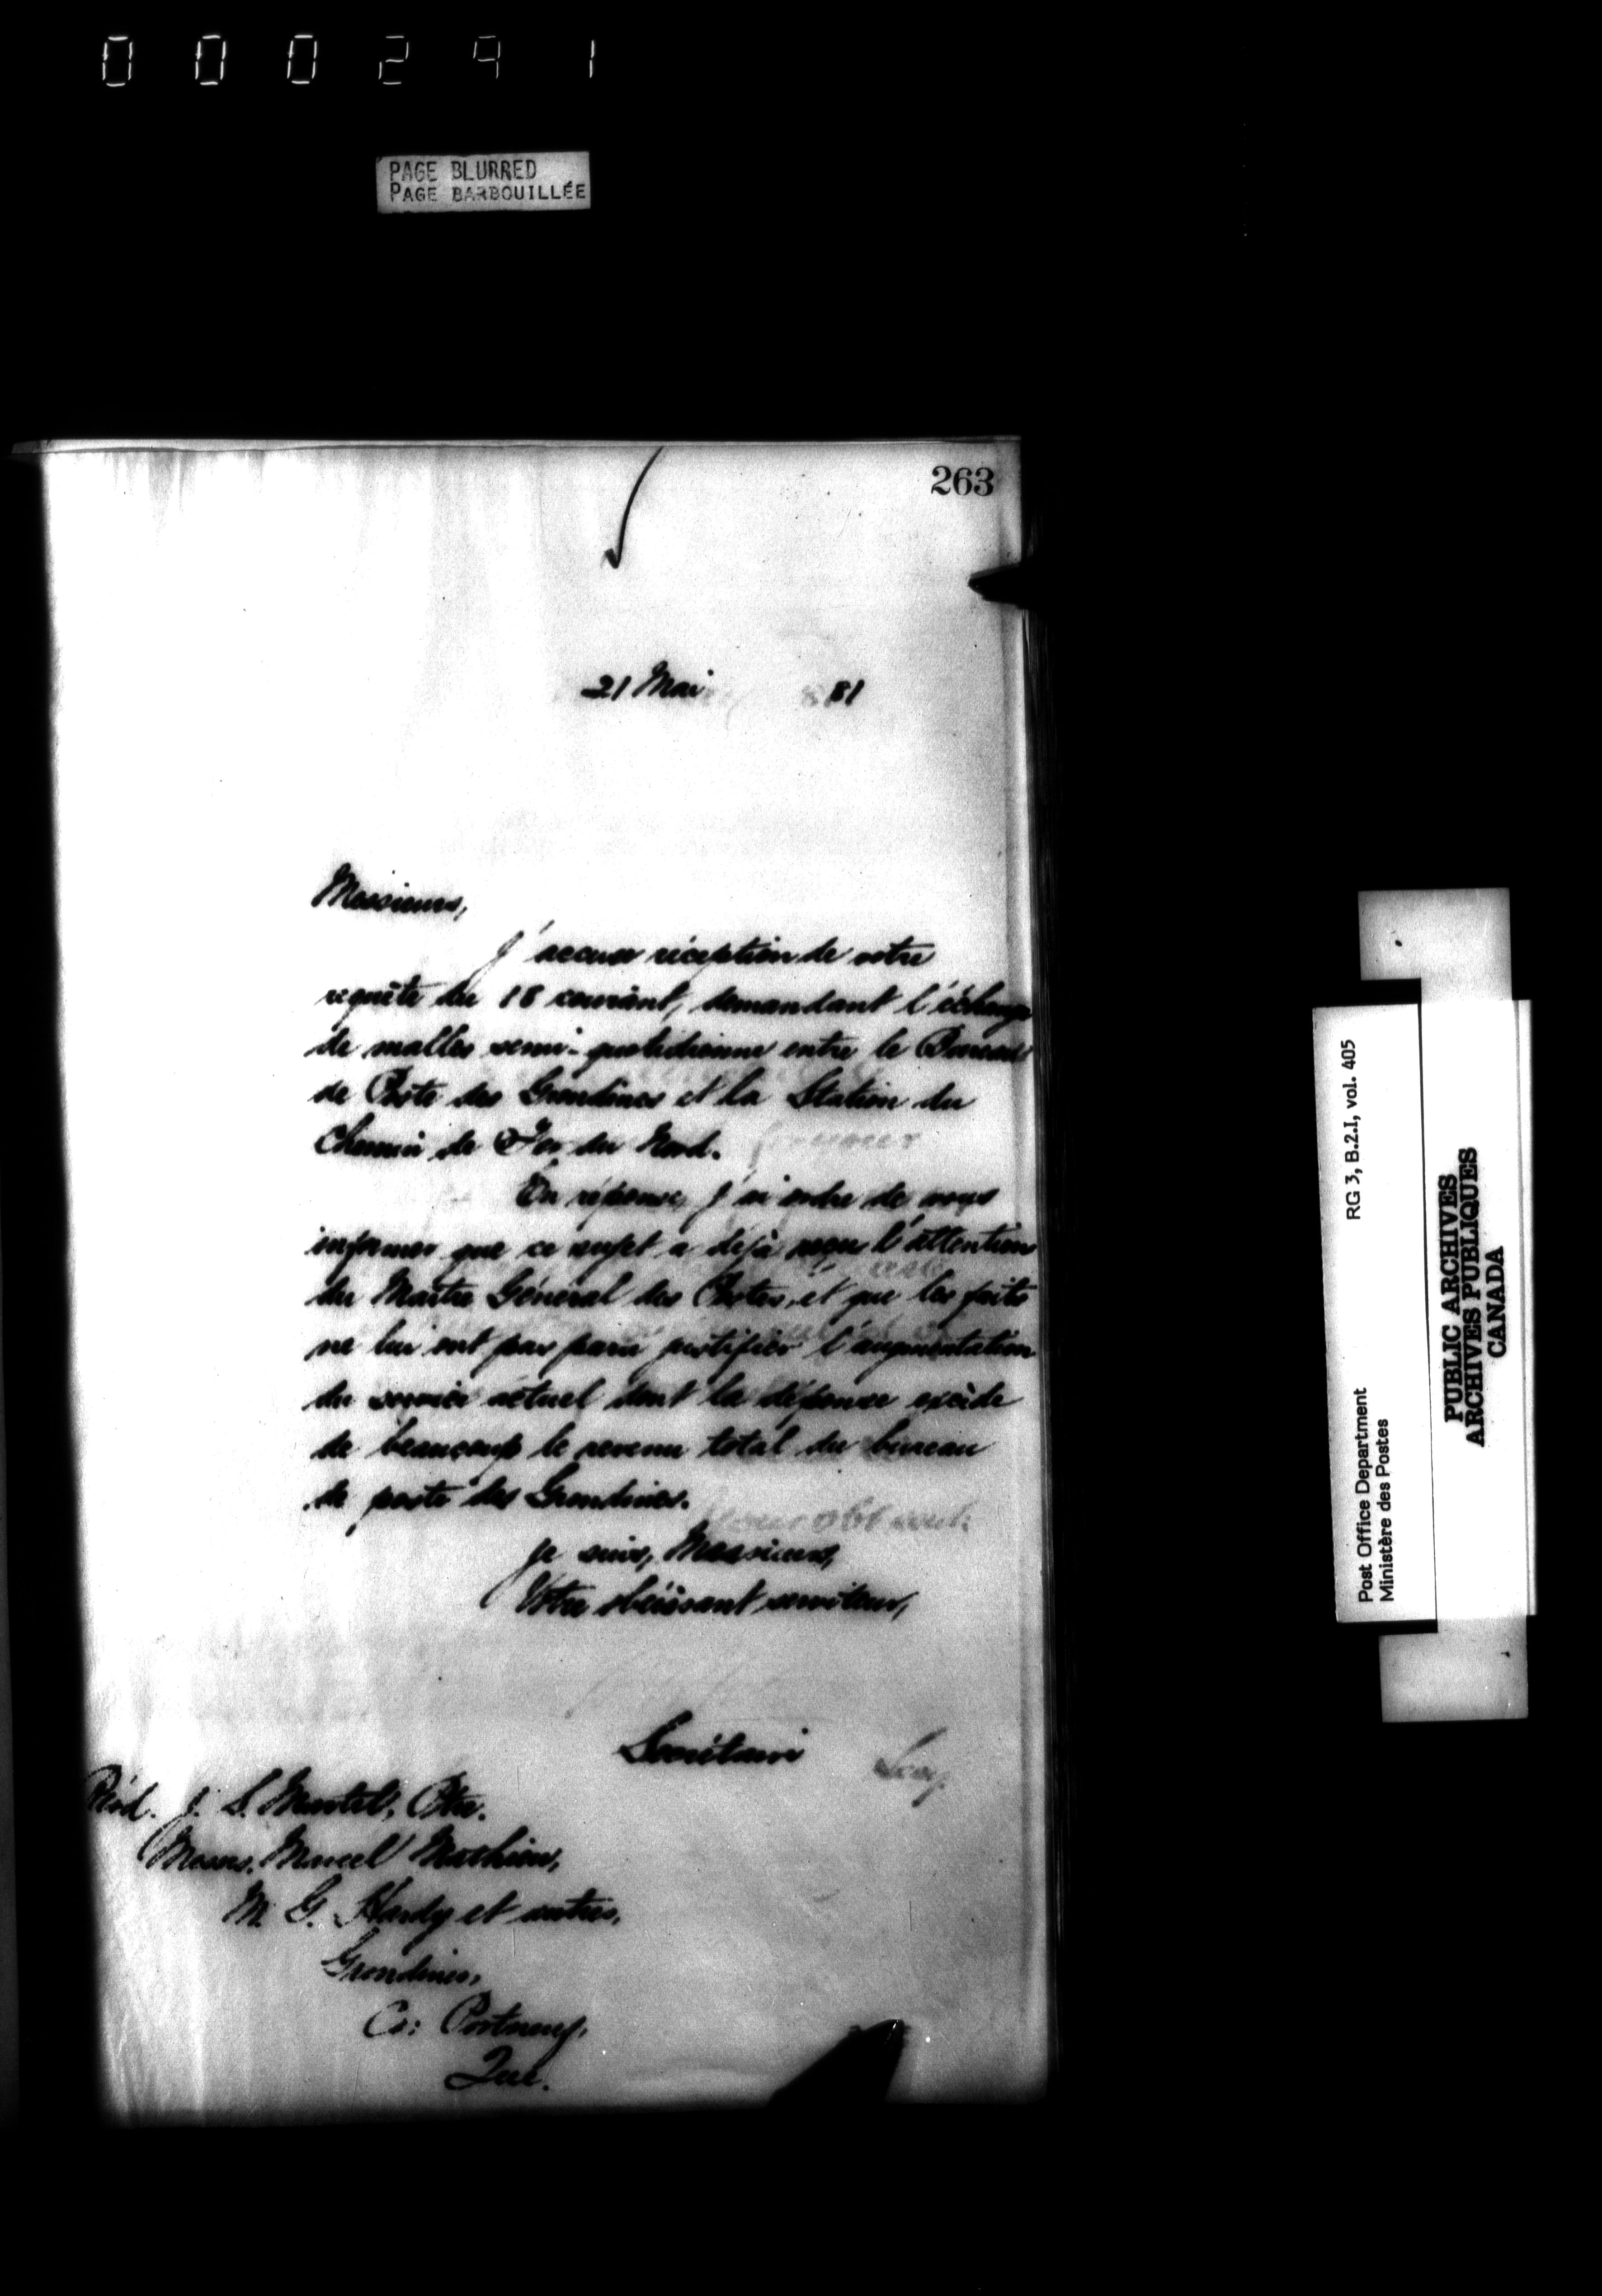 000291
PAGE BLURRED
PAGE BARBOUILLÉE
263
21 Mai 81
Messieurs,
J'accuse réception de votre
requête du 18 courant, demandant l'échange
de malles semi-quotidienne entre le Bureau
de Poste des Grondines et la Station du
Chemin de Fer du Nord.
En réponse, j'ai ordre de vous
informer que ce sujet a déjà reçu l'attention
du Maître Général des Postes, et que les faits
ne lui ont pas paru justifier l'augmentation
du service actuel dont la dépense excède
de beaucoup le revenu total du bureau
de poste des Grondines.
Je suis, Messieurs,
Votre obéissant serviteur,
Secrétaire
Révd. J. S. Martel, Ptre.
Messrs. Marcel Mathieu,
M. G. Hardy et autres,
Grondines,
Co: Portneuf,
Que.
Post Office Department RG 3, B.2.I, vol. 405
Ministère des Postes
PUBLIC ARCHIVES
ARCHIVES PUBLIQUES
CANADA